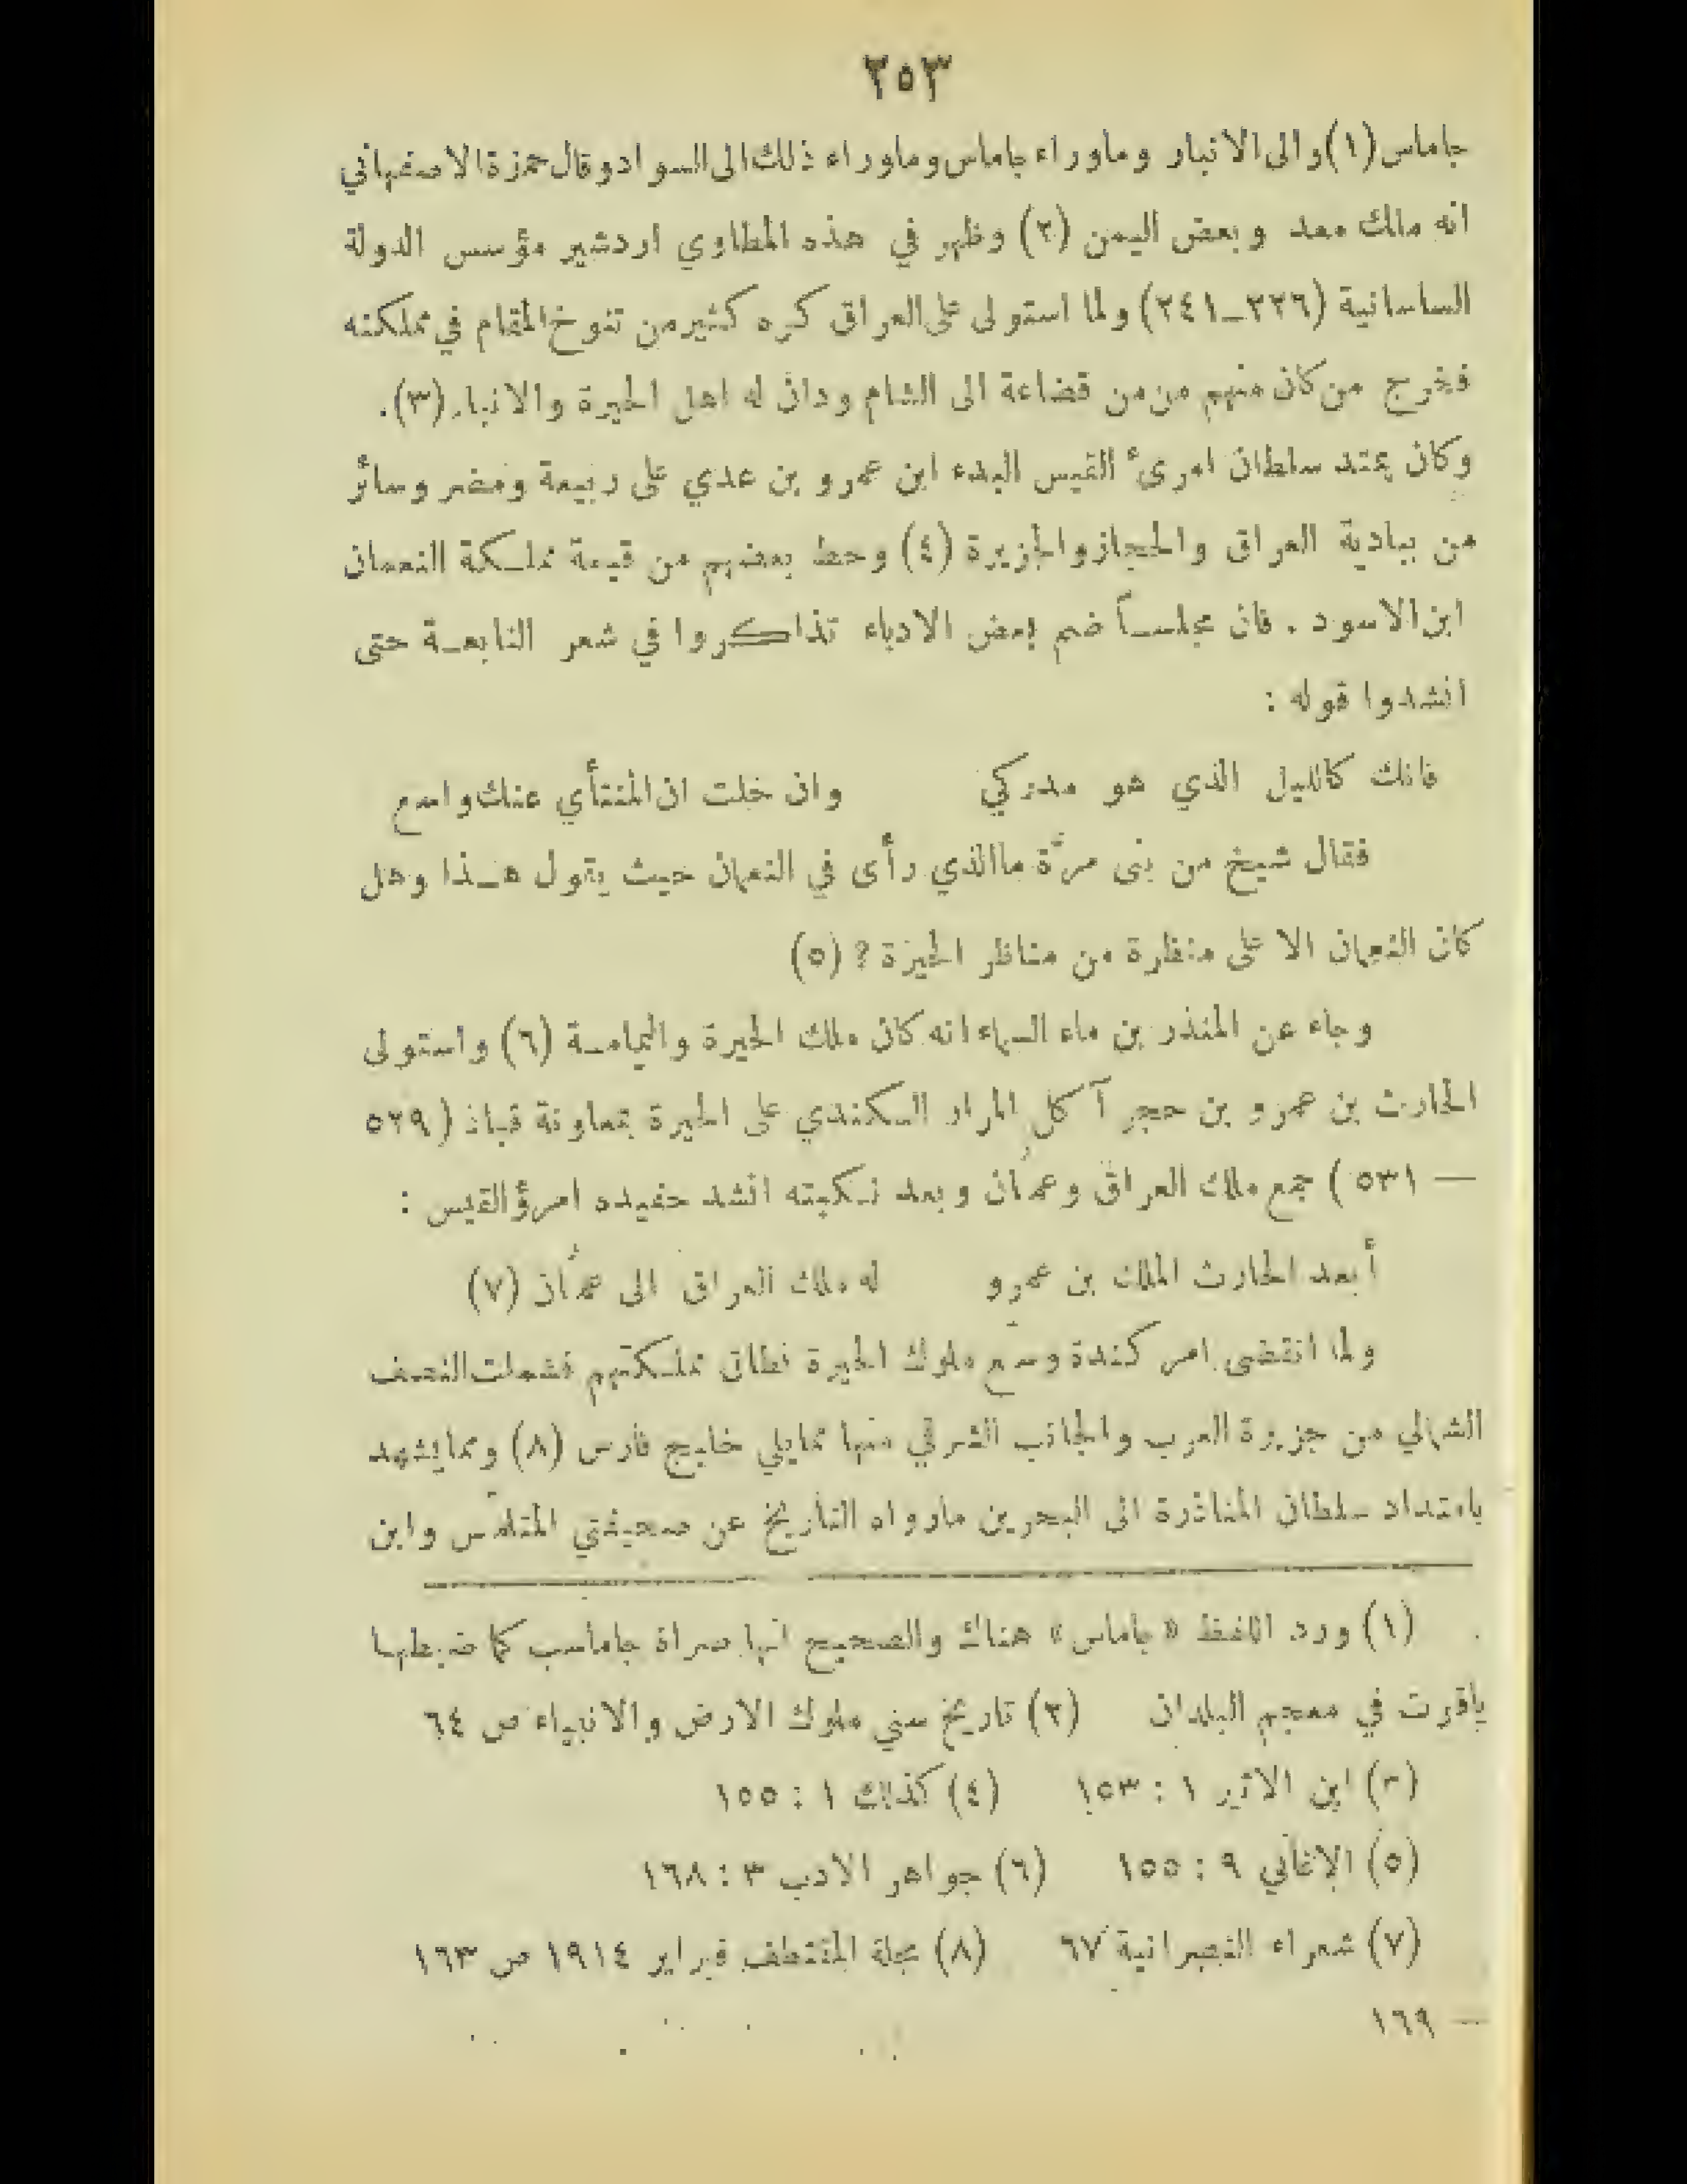 ٢٥٣
جاماس (١) والى الانبار وماوراء جاماس وماوراء ذلك الى السواد وقال حمزة الاصفهاني
انه ملك معد وبعض اليمن (٢) وظهر في هذه المطاوي اردشير مؤسس الدولة
الساسانية (٢٢٦ــ٢٤١) ولما استولى على العراق كره كثير من تنوخ المقام في مملكته
فخرج من كان منهم من من قضاعة الى الشام ودان له اهل الحيرة والانبار (٣).
وكان يمتد سلطان امرىء القيس البدء ابن عمرو بن عدي على ربيعة ومضر وسائر
من ببادية العراق والحجاز والجزيرة (٤) وحط بعضهم من قيمة مملـكة النعمان
ابن الاسود . فان مجلسـاً ضم بعض الادباء تذاكروا في شعر النابغـة حتى
انشدوا قوله :
فانك كالليل الذي هو مدركي وان خلت ان المنتأي عنك واسع
فقال شيخ من بنى مرّة ماالذي رأى في النعمان حيث يقول هـذا وهل
كان النعمان الا على منظرة من مناظر الحيرة ? (٥)
وجاء عن المنذر بن ماء السماء انه كان ملك الحيرة واليمامـة (٦) واستولى
الحارث بن عمرو بن حجر آكل المرار الـكندي على الحيرة بمعاونة قباذ (٥٢٩
— ٥٣١) جمع ملك العراق وعمان وبعد نـكبته انشد حفيده امرؤ القيس :
أبعد الحارث الملك بن عمرو له ملك العراق الى عمان (٧)
ولما انقضى امر كندة وسع ملوك الحيرة نطاق مملـكتهم فشملت النصف
الشمالي من جزيرة العرب والجانب الشرقي منها ممايلي خليج فارس (٨) ومما يشهد
بامتداد سلطان المناذرة الى البحرين مارواه التأريخ عن صحيفتي المتلمّس وابن
(١) ورد اللفظ «جاماس» هناك والصحيح انها صراة جاماسب كما ضبطها
ياقوت في معجم البلدان (٢) تاريخ سني ملوك الارض والانبياء ص ٦٤
(٣) ابن الاثير ١ : ١٥٣ (٤) كذلك ١ : ١٥٥
(٥) الاغاني ٩ : ١٥٥ (٦) جواهر الادب ٣ : ١٦٨
(٧) شعراء النصرانية ٦٧ (٨) مجلة المقتطف فبراير ١٩١٤ ص ١٦٣
— ١٦٩